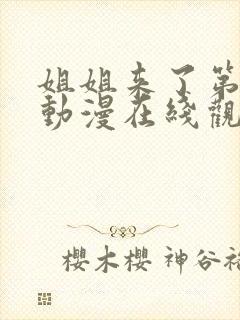 姐姐来了第
動漫在綫觀
櫻木櫻 神谷祐